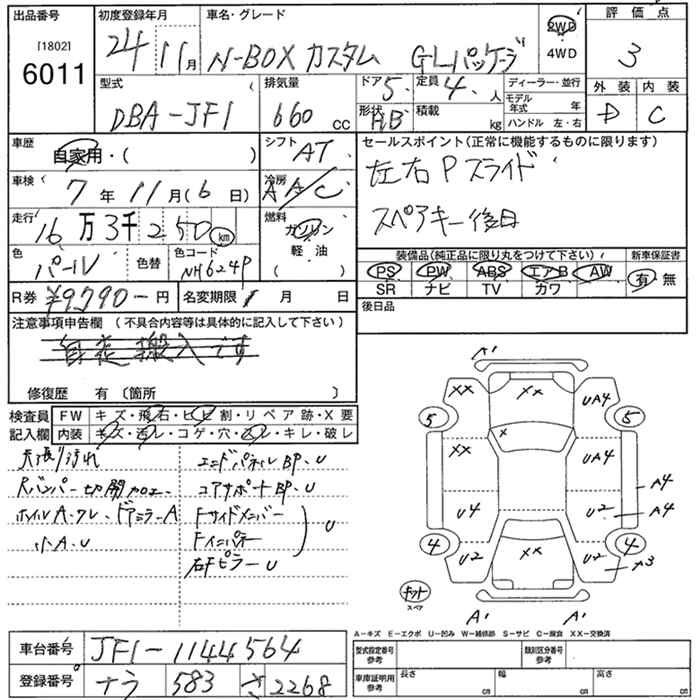 出品番号 初度登録年月 車名・グレード 2WD 4WD 評価点
[1802]
6011 24年 11月 N-BOX カスタム GLパッケージ 3
型式 排気量 ドア 5. 定員 4. 人 ディーラー・並行 外装 内装
DBA-JF1 660 cc 形状 HB 積載 kg モデル年式 年 D C
ハンドル 左・右
車歴 自家用・( ) シフト AT セールスポイント(正常に機能するものに限ります)
車検 7年 11月(6日) 冷房 AAC 左右Pスライド
走行 16万3千250 km 燃料 ガソリン スペアキー後日
軽油
( )
色 パール 色替 色コード NH624P 装備品(純正品に限り丸をつけて下さい) 新車保証書
PS PW ABS エアB AW 有・無
SR ナビ TV カワ
R券 ¥9,790-円 名変期限 月 日 後日品
注意事項申告欄 (不具合内容等は具体的に記入して下さい)
自走搬入です
修復歴 有 〔箇所 〕
検査員 FW キズ・飛石・ヒビ割・リペア跡・X要
記入欄 内装 キズ・汚レ・コゲ・穴・凹レ・キレ・破レ
天張り汚れ エンドパネルBP.U
Rバンパー切開加工 コアサポートBP.U
ホイルA.クレ.ドアミラーA Fサイドメンバー
小A.U Fインパネ U
右Fピラー U
A'
XX XX UA4
5 5
XX X UA4
A4
U4 U2 A4
4 U2 XX U2 4
A3
キット
スペア
A' A'
A-キズ E-エクボ U-凹み W-補修跡 S-サビ C-腐食 XX-交換済
車台番号 JF1-1144564 型式指定番号 参考 類別区分番号 参考
登録番号 ナラ 583 さ 2268 車庫証明用 参考 長さ cm 幅 cm 高さ cm